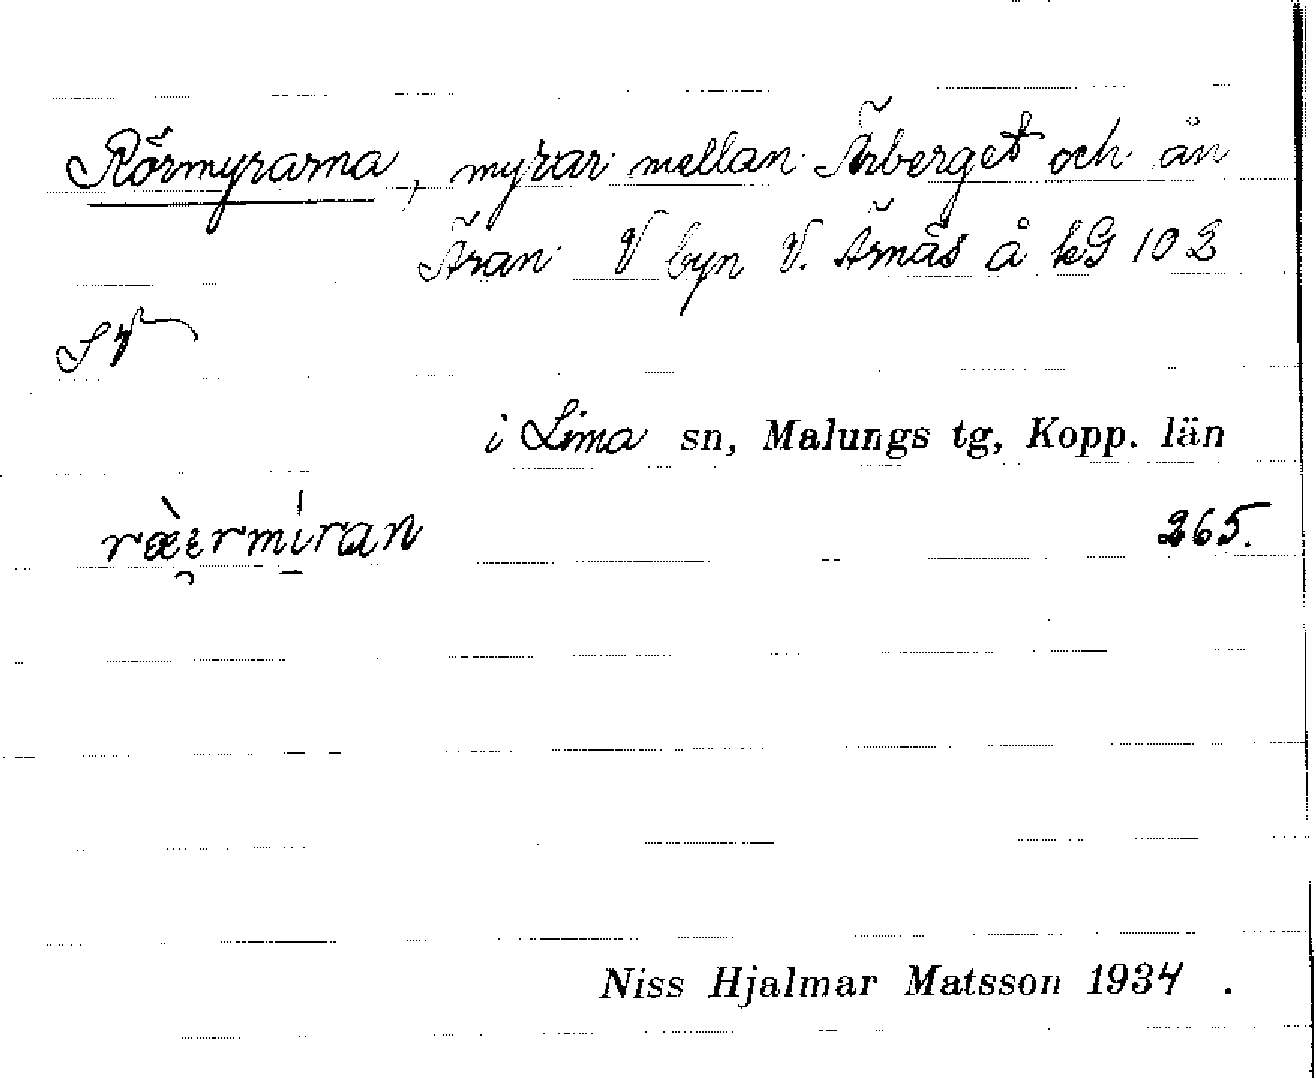 Rörmyrarna, myrar mellan Ärberget och ån
Äran V byn V. Ärnäs å kG 102
i Lima sn, Malungs tg, Kopp. län
ræ̀ermíran 265.
Niss Hjalmar Matsson 1934.